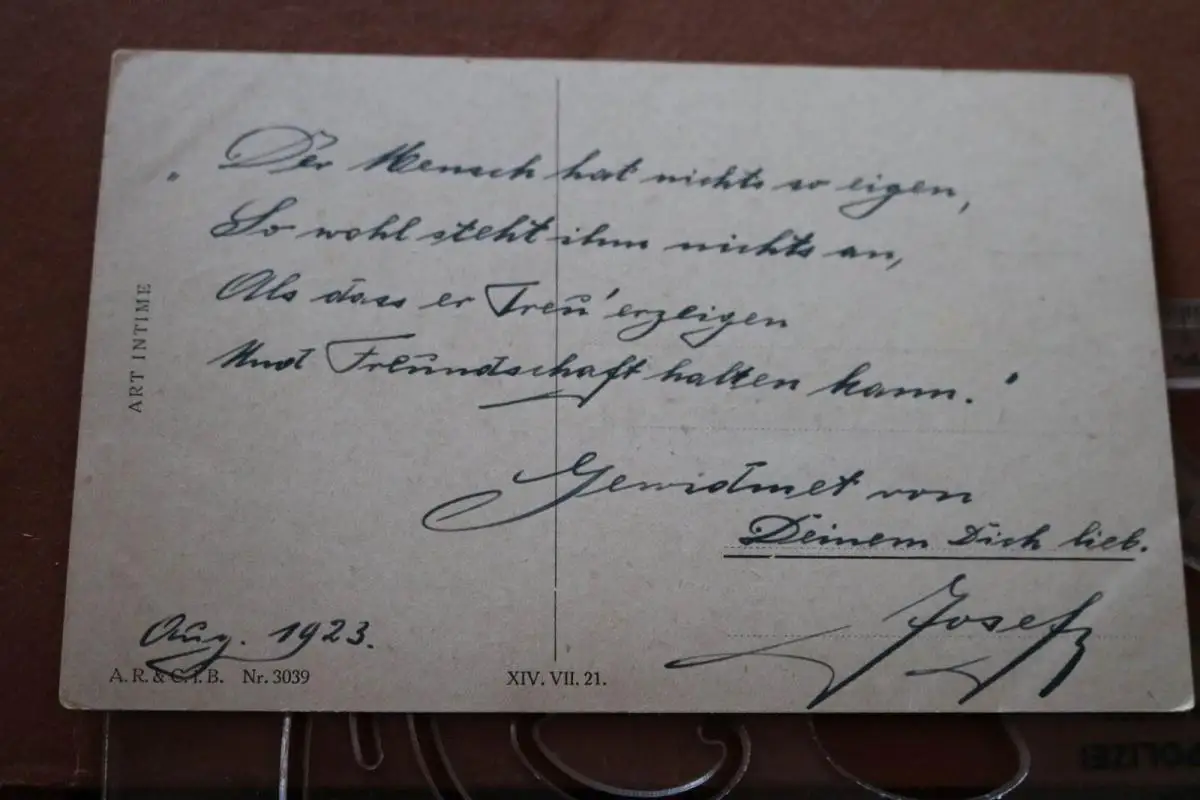 „Der Mensch hat nichts so eigen,
So wohl steht ihm nichts an,
Als dass er Treu' erzeigen
Und Freundschaft halten kann."
Gewidmet von
Deinem Dich lieb.
Josef
Aug. 1923.
ART INTIME
A. R. & C. i. B. Nr. 3039
XIV. VII. 21.
POLIZEI